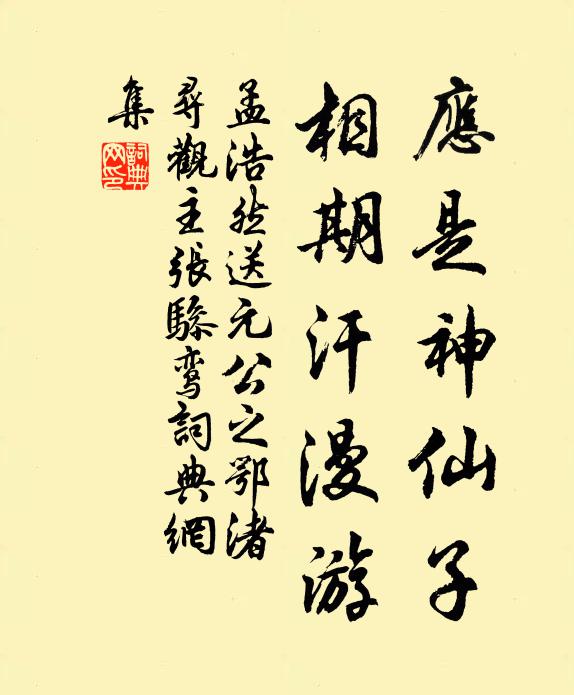 應是神仙子
相期汗漫游
孟浩然送元公之鄂渚
尋觀主張驂鸾詞典網
集
詞典
网印